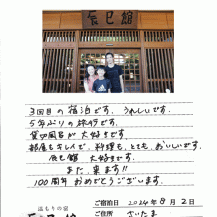 辰巳館
3回目の宿泊です。うれしいです。
5年ぶりの旅行です。
貸切風呂が大好きです
部屋もキレイで、料理も、とても、おいしいです。
辰巳館 大好きです。
また、来ます!!
100周年 おめでとうございます。
ご宿泊日 2024年8月2日
温もりの宿
辰巳館
ご住所 さいたま